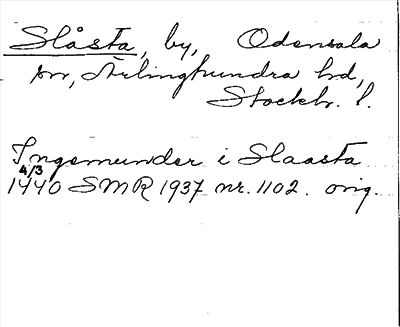 Slåsta, by, Odensala
sn, Ärlinghundra hd,
Stockh. l.
Ingemunder i Slaasta
4/3
1440 SMR 1937 nr. 1102. orig.